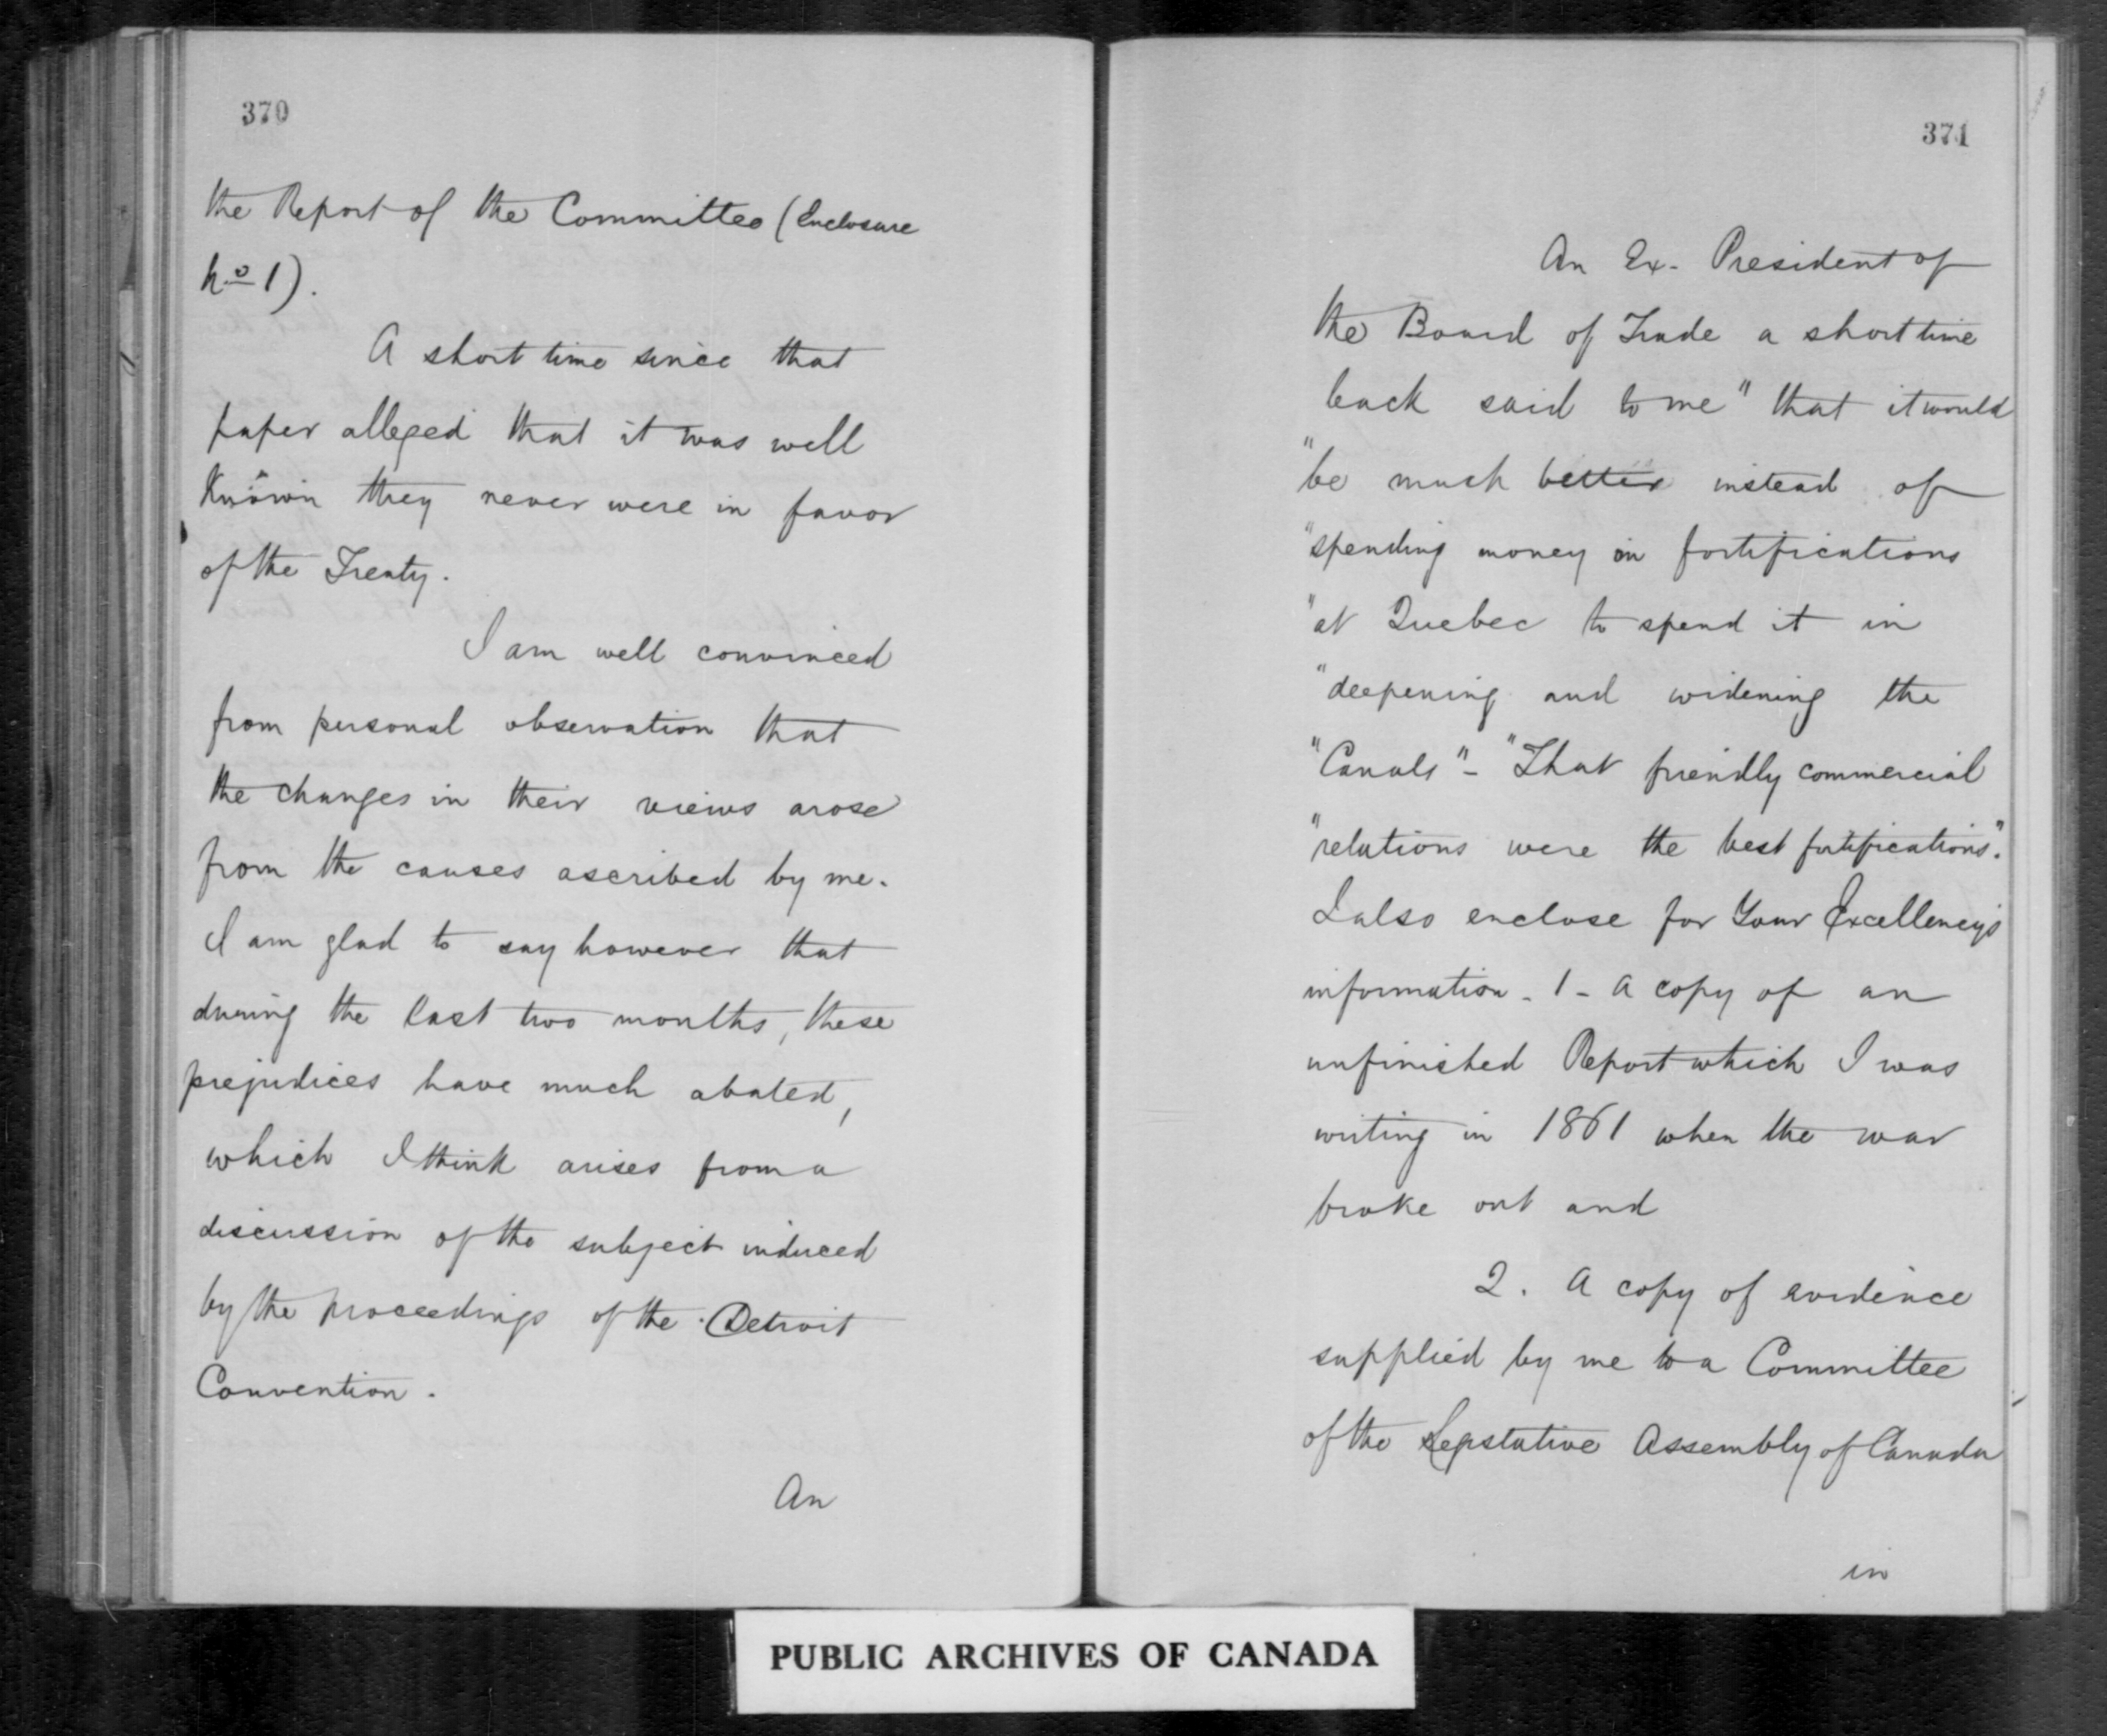 370
the Report of the Committee (Enclosure
No 1).
A short time since that
paper alleged that it was well
Known they never were in favor
of the Treaty.
I am well convinced
from personal observation that
the changes in their views arose
from the causes ascribed by me.
I am glad to say however that
during the last two months, these
prejudices have much abated,
which I think arises from a
discussion of the subject induced
by the proceedings of the Detroit
Convention.
An
371
An Ex-President of
the Board of Trade a short time
back said to me "that it would
"be much better instead of
"spending money on fortifications
"at Quebec to spend it in
"deepening and widening the
"Canals"- "That friendly commercial
"relations were the best fortifications".
I also enclose for Your Excellency's
information - 1 - A copy of an
unfinished Report which I was
writing in 1861 when the war
broke out and
2. A copy of evidence
supplied by me to a Committee
of the Legislative Assembly of Canada
in
PUBLIC ARCHIVES OF CANADA